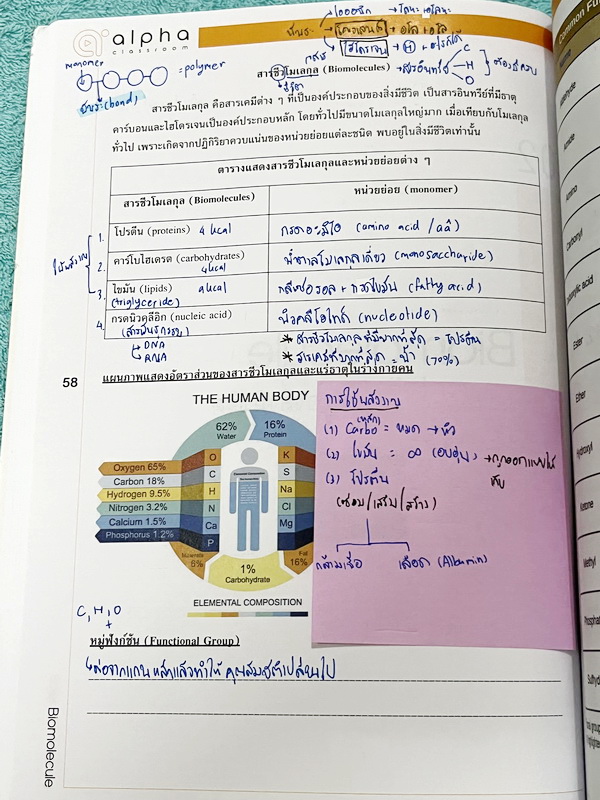 alpha
classroom
monomer
= polymer
พันธะ (bond)
สารชีวโมเลกุล (Biomolecules)
C
H
O
สารชีวโมเลกุล คือสารเคมีต่าง ๆ ที่เป็นองค์ประกอบของสิ่งมีชีวิต เป็นสารอินทรีย์ที่มีธาตุ
คาร์บอนและไฮโดรเจนเป็นองค์ประกอบหลัก โดยทั่วไปมีขนาดโมเลกุลใหญ่มาก เมื่อเทียบกับโมเลกุล
ทั่วไป เพราะเกิดจากปฏิกิริยาควบแน่นของหน่วยย่อยแต่ละชนิด พบอยู่ในสิ่งมีชีวิตเท่านั้น
ตารางแสดงสารชีวโมเลกุลและหน่วยย่อยต่าง ๆ
สารชีวโมเลกุล (Biomolecules) หน่วยย่อย (monomer)
1. โปรตีน (proteins) 4 kcal กรดอะมิโน (amino acid / aa)
2. คาร์โบไฮเดรต (carbohydrates) 4 kcal น้ำตาลโมเลกุลเดี่ยว (monosaccharide)
3. ไขมัน (lipids) 9 kcal กลีเซอรอล + กรดไขมัน (fatty acid)
(triglyceride)
4. กรดนิวคลีอิก (nucleic acid) นิวคลีโอไทด์ (nucleotide)
(สารพันธุกรรม)
DNA
RNA
* สารชีวโมเลกุลที่มีมากที่สุด = โปรตีน
* สารเคมีที่มากที่สุด = น้ำ (70%)
58
แผนภาพแสดงอัตราส่วนของสารชีวโมเลกุลและแร่ธาตุในร่างกายคน
THE HUMAN BODY
62% Water
16% Protein
Oxygen 65%
Carbon 18%
Hydrogen 9.5%
Nitrogen 3.2%
Calcium 1.5%
Phosphorus 1.2%
O
C
H
N
Ca
P
K
S
Na
Cl
Mg
Minerals 6%
1% Carbohydrate
Fat 16%
ELEMENTAL COMPOSITION
การใช้พลังงาน
(1) Carbo = หมด → หิว
(2) ไขมัน = ∞
(3) โปรตีน
(ซ่อม/เสริม/สร้าง)
กล้ามเนื้อ เลือด (Albumin)
C, H, O
+
หมู่ฟังก์ชัน (Functional Group)
ต่อจากแกนหลักแล้วทำให้คุณสมบัติเปลี่ยนไป
Biomolecule